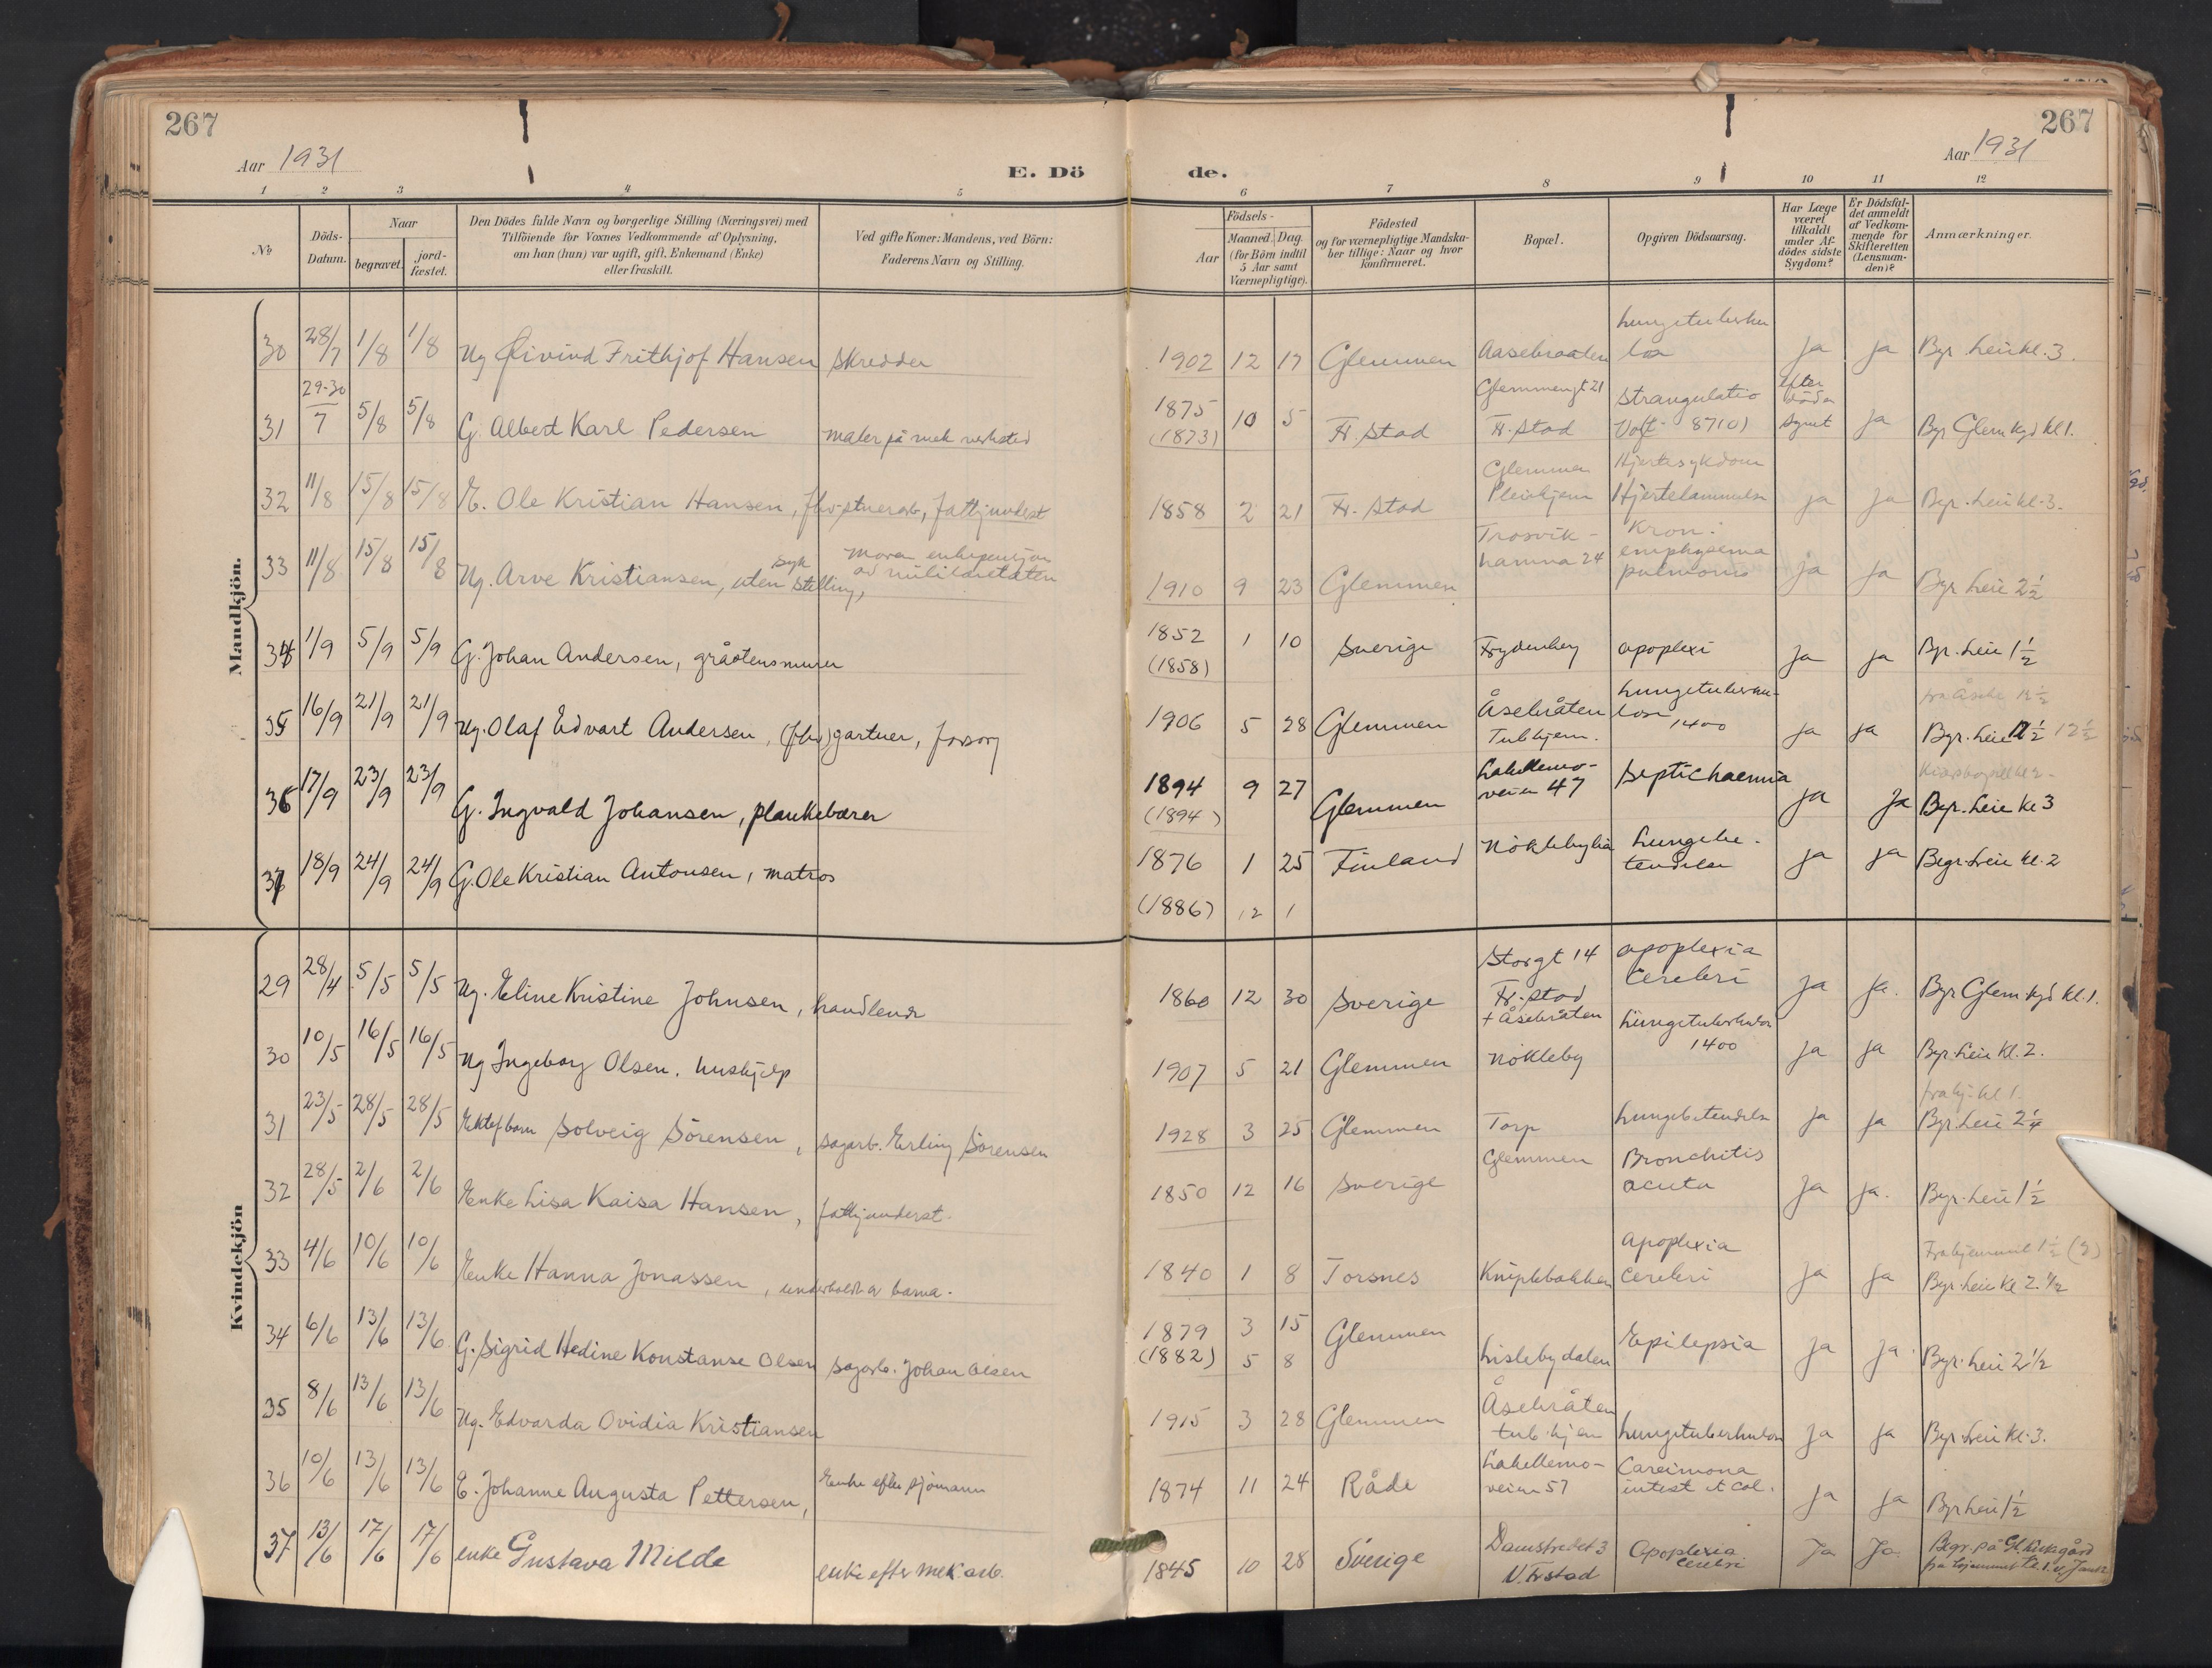 267
267
Aar 1931
E. Dö
de.
Aar 1931
1 2 3 4 5 6 7 8 9 10 11 12
No
Döds-Datum.
Naar
begravet.
jord-fæstet.
Den Dödes fulde Navn og borgerlige Stilling (Næringsvei) med
Tilföiende for Voxnes Vedkommende af Oplysning,
om han (hun) var ugift, gift, Enkemand (Enke)
eller fraskilt.
Ved gifte Koner: Mandens, ved Börn:
Faderens Navn og Stilling.
Födsels-
Aar
Maaned.
Dag.
(for Börn indtil
5 Aar samt
Værnepligtige).
Födested
og for værnepligtige Mandska-
ber tillige: Naar og hvor
konfirmeret.
Bopæl.
Opgiven Dödsaarsag.
Har Læge
været
tilkaldt
under Af-
dödes sidste
Sygdom?
Er Dödsfal-
det anmeldt
af Vedkom-
mende for
Skifteretten
(Lensman-
den)?
Anmærkninger.
Mandkjön.
30 28/7 1/8 1/8 Ug Øivind Frithjof Hansen skredder 1902 12 17 Glemmen Aasebraaten Lungetuberku
lose ja ja Bgr. Leiekl. 3.
31 29-30/7 5/8 5/8 G. Albert Karl Pedersen maler på mek verksted 1875 (1873) 10 5 Fr. Stad Glemmengt 21
Fr. Stad Strangulatio
8710) efter döden synet ja Bgr Glem kgd kl 1.
32 11/8 15/8 15/8 E. Ole Kristian Hansen, fhv. stuerarb, fattigunderst 1858 2 21 Fr. Stad Glemmen
Pleiehjem Hjertesykdom
Hjertelammelse ja ja Bgr. Leie kl. 3.
33 11/8 15/8 15/8 Ug. Arve Kristiansen, uten Stilling, syk Moren enkepensjon
av militæretaten 1910 9 23 Glemmen Trosvik-
hamna 24 Kron:
emphysema
pulmonis ja ja Bgr Leie 2 1/2
34 1/9 5/9 5/9 G. Johan Andersen, gråstensmurer 1852 (1858) 1 10 Sverige Frydenberg apoplexi ja ja Bgr. Leie 1 1/2
35 16/9 21/9 21/9 Ug. Olaf Edvart Andersen, (fhv) gartner, forsorg 1906 5 28 Glemmen Åsebråten
Tubhjem. Lungetuberku-
lose 1400 ja ja Bgr. Leie 12 1/2
36 17/9 23/9 23/9 G. Ingvald Johansen, plankebærer 1894 (1894) 9 27 Glemmen Lahellemo-
veien 47 Septichaemia ja ja Bgr. Leie kl 3
37 18/9 24/9 24/9 G. Ole Kristian Antonsen, matros 1876 1 25 (1886) 12 1 Finland Nöklebylia Lungebe-
tendelse ja ja Begr. Leie kl. 2
Kvindekjön
29 28/4 5/5 5/5 Ug. Eline Kristine Johnsen, handlende 1860 12 30 Sverige Storgt 14
Fr. stad
+ Åsebråten apoplexia
cerebri ja ja. Bgr Glem kgd kl. 1.
30 10/5 16/5 16/5 Ug Ingeborg Olsen. hushjelp 1907 5 21 Glemmen Nökleby Lungetuberkulose
1400 ja ja Bgr. Leie kl. 2.
31 23/5 28/5 28/5 Ektef barn Solveig Sörensen, sagarb. Erling Sörensen 1928 3 25 Glemmen Torp Lungebetendelse ja ja fra hj. kl 1.
Bgr. Leie 2 1/4
32 28/5 2/6 2/6 Enke Lisa Kaisa Hansen, fattigunderst. 1850 12 16 Sverige Glemmen Bronchitis
acuta ja ja. Bgr. Leie 1 1/2
33 4/6 10/6 10/6 Enke Hanna Jonassen, underholdt a barna. 1840 1 8 Torsnes Kniplebakken Apoplexia
cerebri ja ja Fra hjemmet 1 1/2
Bgr. Leie kl 2. 1/2
34 6/6 13/6 13/6 G. Sigrid Hedine Konstanse Olsen sagarb. Johan Olsen 1879 3 15 (1882) 5 8 Glemmen Lislebydalen Epilepsia ja ja. Bgr. Leie 2 1/2
35 8/6 13/6 13/6 Ug. Edvarda Ovidia Kristiansen 1915 3 28 Glemmen Åsebråten
tub. hjem Lungetuberkulose ja ja Bgr. Leie kl. 3.
36 10/6 13/6 13/6 E. Johanne Augusta Pettersen, Enke efter sjömann 1874 11 24 Råde Lahellemo-
veien 57 Carcinoma
intest et col. ja ja Bgr Leie 1 1/2
37 13/6 17/6 17/6 enke Gustava Milde enke efter mek. arb. 1845 10 28 Sverige Damstredet 3
V. Frstad Apoplexia
cerebri Ja Ja. Begr. på Gl. kirkegård
fra hjemmet kl. 1.